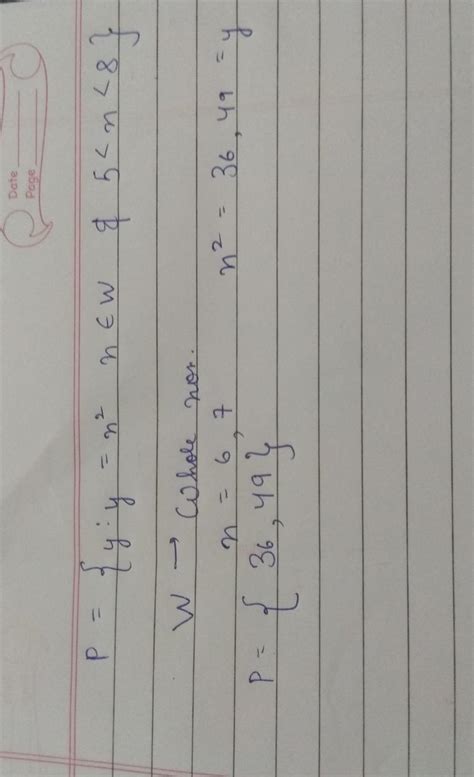 Date
Page
P = { y : y = n² n ∈ W & 5 < n < 8 }
W → Whole nos.
n = 6, 7 n² = 36, 49 = y
P = { 36, 49 }